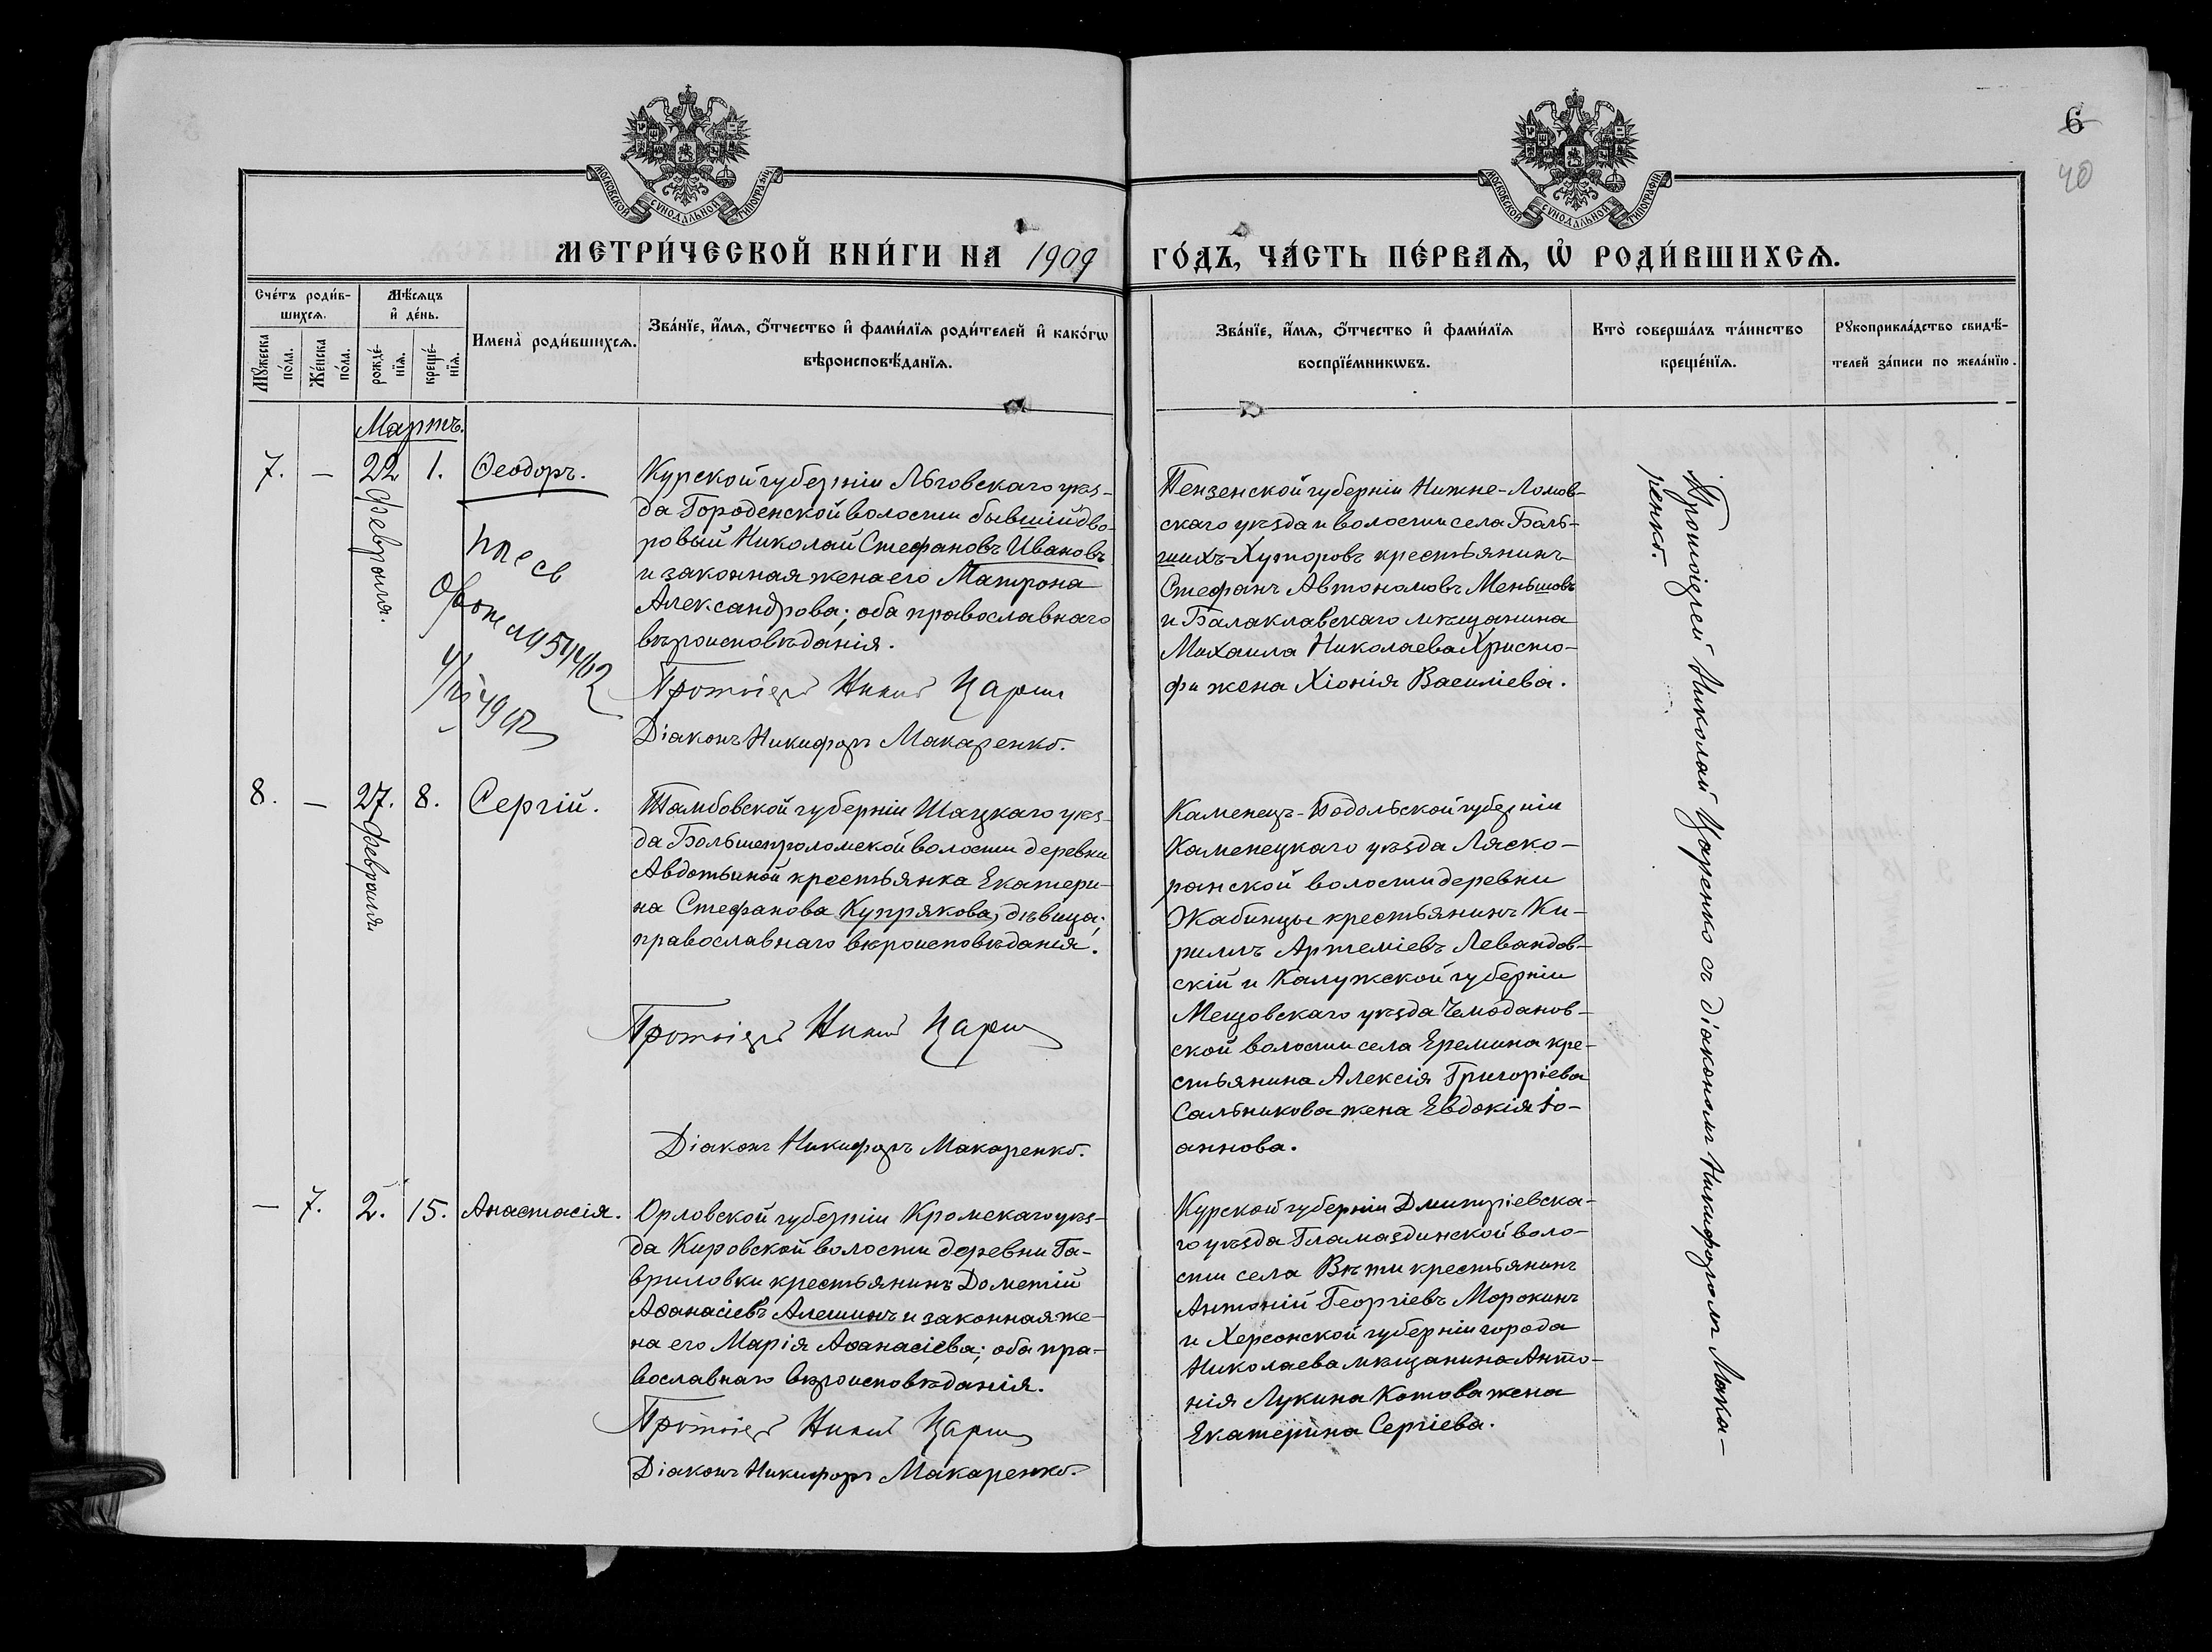 6
40
МОСКОВСКОЙ СУНОДАЛЬНОЙ ТИПОГРАФІИ
МОСКОВСКОЙ СУНОДАЛЬНОЙ ТИПОГРАФІИ
МЕТРИ́ЧЕСКОЙ КНИ́ГИ НА 1909 ГО́ДЪ, ЧА́СТЬ ПЕ́РВАѦ, Ѡ҆ РОДИ́ВШИХСѦ.
Сче́тъ роди́в-
шихсѧ.
Мꙋ́жеска
по́ла.
Же́нска
по́ла.
Мѣ́сѧцъ
и҆ де́нь.
рожде́-
нїѧ.
креще́-
нїѧ.
Имена̀ роди́вшихсѧ.
Зва́нїе, и҆́мѧ, ѻ҆́тчество и҆ фами́лїѧ роди́телей и҆ како́гѡ
вѣроисповѣ́данїѧ.
Зва́нїе, и҆́мѧ, ѻ҆́тчество и҆ фами́лїѧ
воспрїе́мникѡвъ.
Кто̀ соверша́лъ та́инство
креще́нїѧ.
Рꙋкоприкла́дство свидѣ́-
телей за́писи по жела́нїю.
Мартъ.
7. — 22 февраля. 1. Ѳеодоръ.
Курской губерніи Льговскаго уѣз-
да Городенской волости бывшій дво-
ровый Николай Стефановъ Ивановъ
и законная жена его Матрона
Александрова; оба православнаго
вѣроисповѣданія.
Протоіерей
Діаконъ Никифоръ Макаренко.
Пензенской губерніи Нижне-Ломов-
скаго уѣзда и волости села Боль-
шихъ-Хуторовъ крестьянинъ
Стефанъ Автономовъ Меньшовъ
и Балаклавскаго мѣщанина
Михаила Николаева Христо-
фи жена Хіонія Василіева.
Протоіерей Николай Царенко съ діакономъ Никифоромъ Мака-
ренко.
8. — 27. февраля. 8. Сергій.
Тамбовской губерніи Шацкаго уѣз-
да Большепроломской волости деревни
Авдотьиной крестьянка Екатери-
на Стефанова Купрякова, дѣвица;
православнаго вѣроисповѣданія.
Протоіерей
Діаконъ Никифоръ Макаренко.
Каменецъ-Подольской губерніи
Каменецкаго уѣзда Ляско-
ронской волости деревни
Жабинцы крестьянинъ Ки-
риллъ Артеміевъ Левандов-
скій и Калужской губерніи
Мещовскаго уѣзда Чемоданов-
ской волости села Еремина кре-
стьянина Алексія Григоріева
Сальникова жена Евдокія Іо-
аннова.
— 7. 2. 15. Анастасія.
Орловской губерніи Кромскаго уѣз-
да Кировской волости деревни Га-
вриловки крестьянинъ Дометій
Аѳанасіевъ Алешинъ и законная же-
на его Марія Аѳанасіева; оба пра-
вославнаго вѣроисповѣданія.
Протоіерей
Діаконъ Никифоръ Макаренко.
Курской губерніи Дмитріевска-
го уѣзда Гламаздинской воло-
сти села Вѣти крестьянинъ
Антоній Георгіевъ Морокинъ
и Херсонской губерніи города
Николаева мѣщанина Анто-
нія Лукина Котова жена
Екатерина Сергіева.